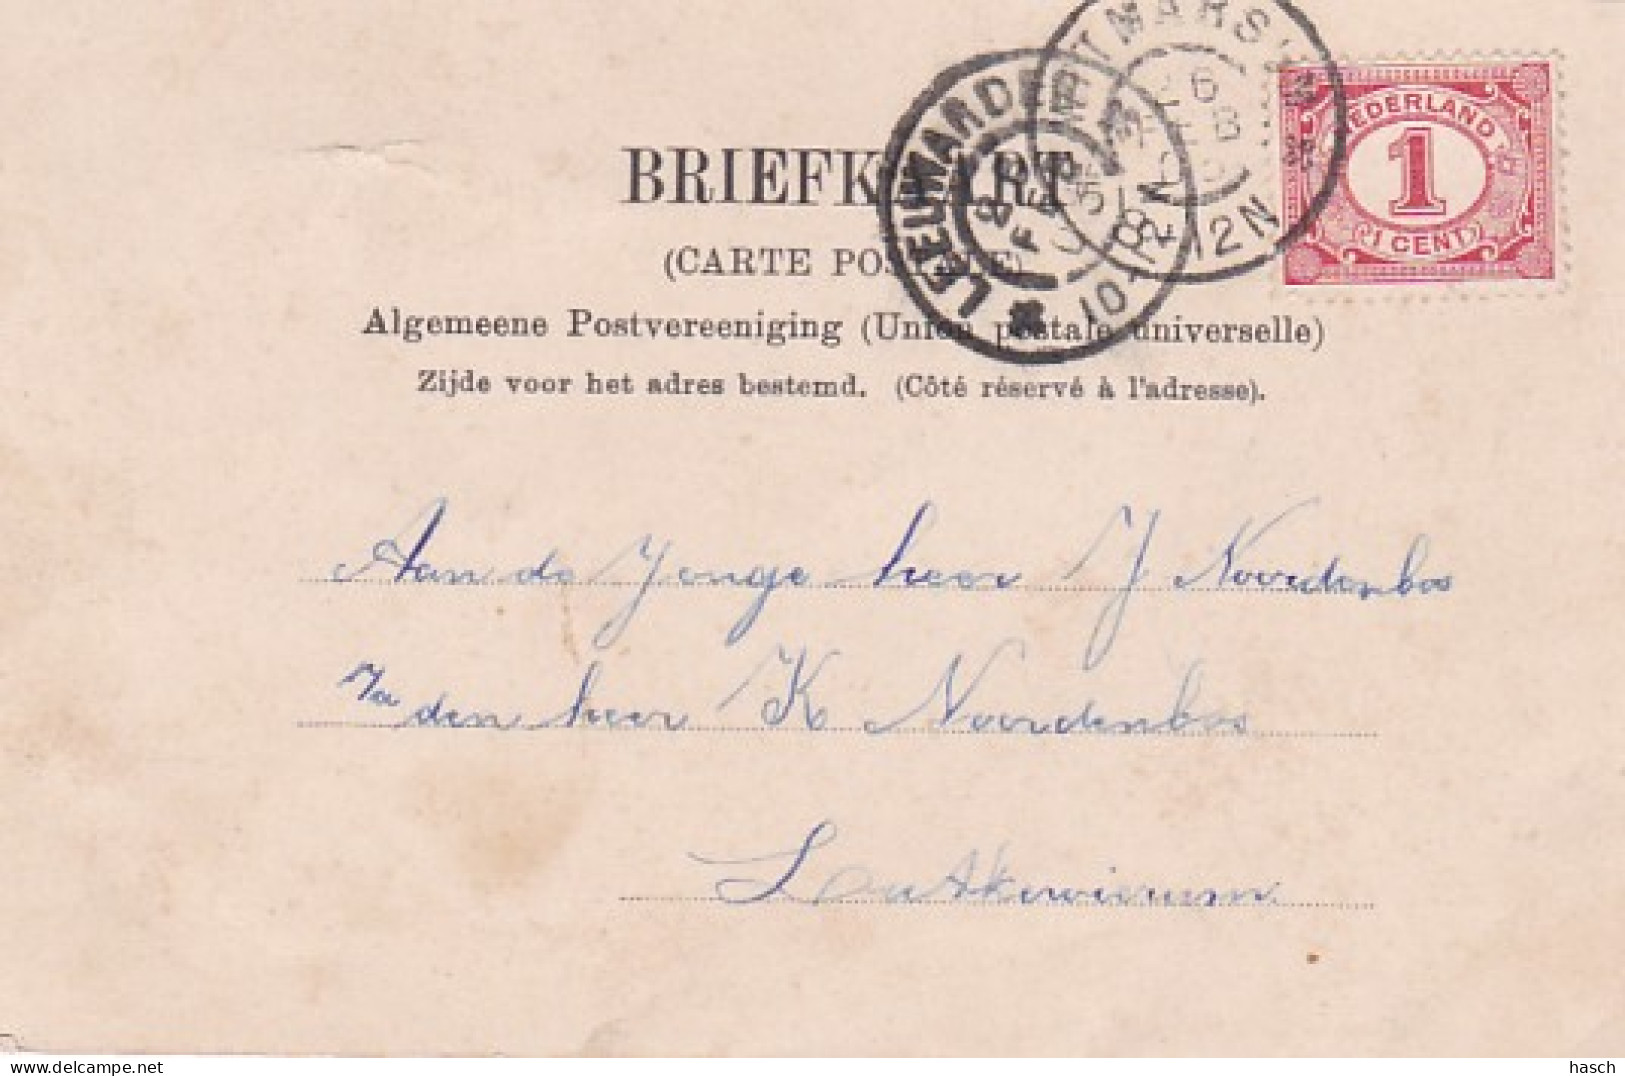 BRIEFKAART
(CARTE POSTALE)
Algemeene Postvereeniging (Union postale universelle)
Zijde voor het adres bestemd. (Côté réservé à l'adresse).
LEEUWARDEN
10-12N
NEDERLAND
1
1 CENT
Aan de Jonge heer J Noordenbos
den heer K Noordenbos
Loutkewierum
delcampe.net
hasch